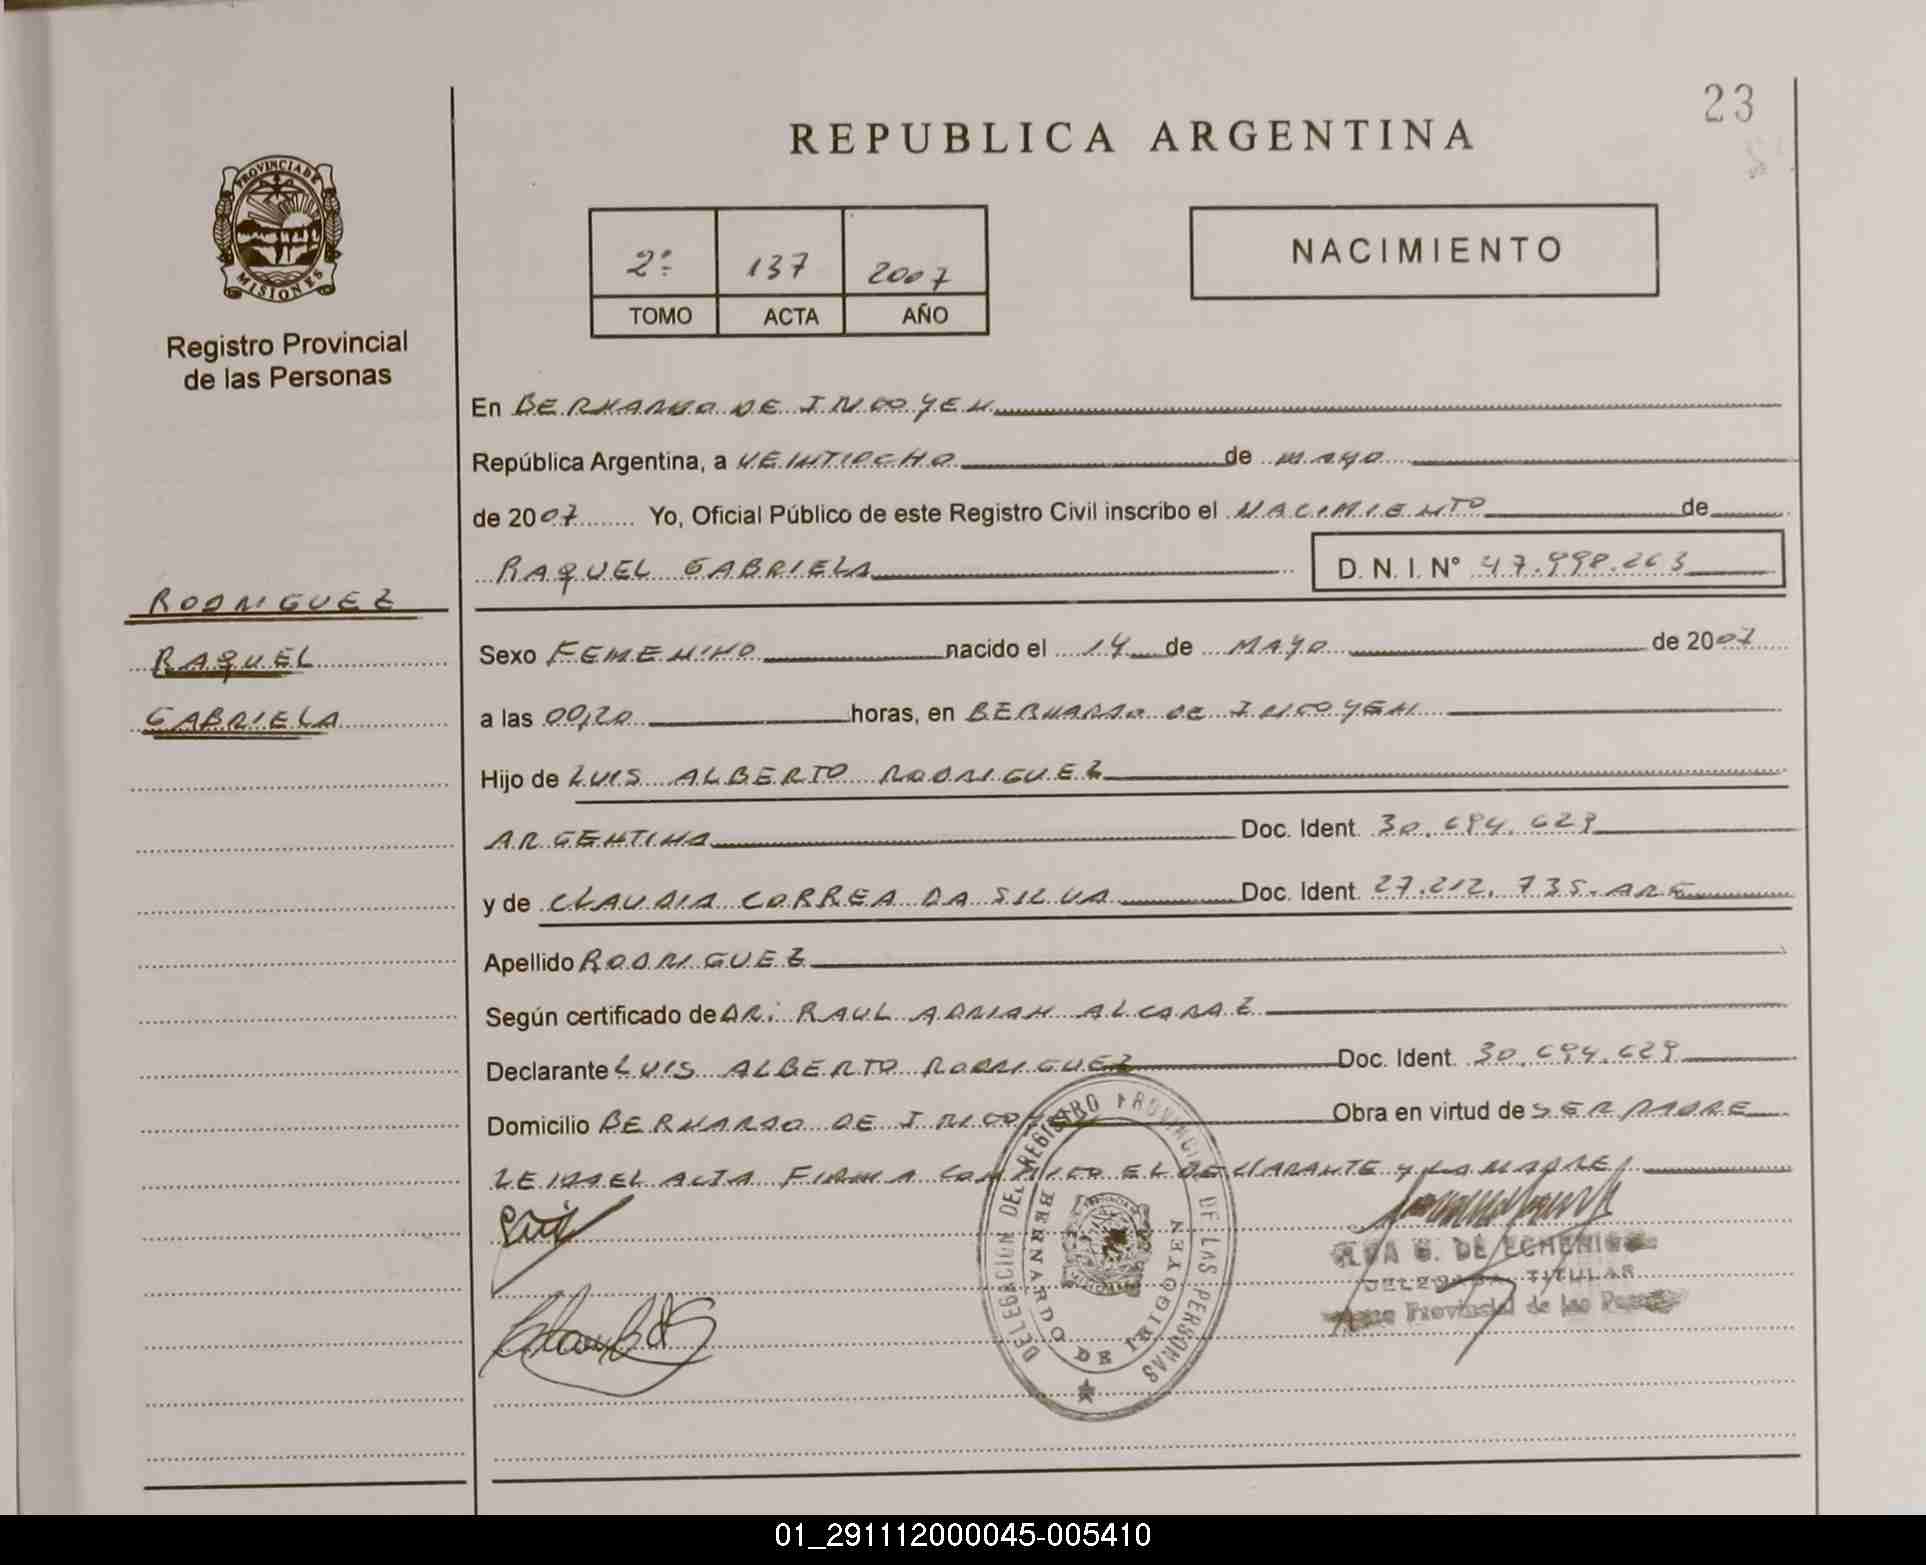 23
REPUBLICA ARGENTINA
PROVINCIA DE
MISIONES
Registro Provincial
de las Personas
2º 137 2007
TOMO ACTA AÑO
NACIMIENTO
En BERNARDO DE IRIGOYEN
República Argentina, a VEINTIOCHO de MAYO
de 2007 Yo, Oficial Público de este Registro Civil inscribo el NACIMIENTO de
RAQUEL GABRIELA D. N. I. N° 47.998.263
RODRIGUEZ
RAQUEL
GABRIELA
Sexo FEMENINO nacido el 14 de MAYO de 2007
a las 00,20 horas, en BERNARDO DE IRIGOYEN
Hijo de LUIS ALBERTO RODRIGUEZ
ARGENTINA Doc. Ident. 30.694.629
y de CLAUDIA CORREA DA SILVA Doc. Ident. 27.212.735. ARG
Apellido RODRIGUEZ
Según certificado de DR: RAUL ADRIAN ALCARAZ
Declarante LUIS ALBERTO RODRIGUEZ Doc. Ident. 30.694.629
Domicilio BERNARDO DE IRIGOYEN Obra en virtud de SER PADRE
LEIDA EL ACTA FIRMA CONMIGO EL DECLARANTE Y LA MADRE
DELEGACION DEL REGISTRO PROVINCIAL DE LAS PERSONAS
BERNARDO DE IRIGOYEN
DE ECHENIQUE
DELEGADA TITULAR
Provincial de las
01_291112000045-005410